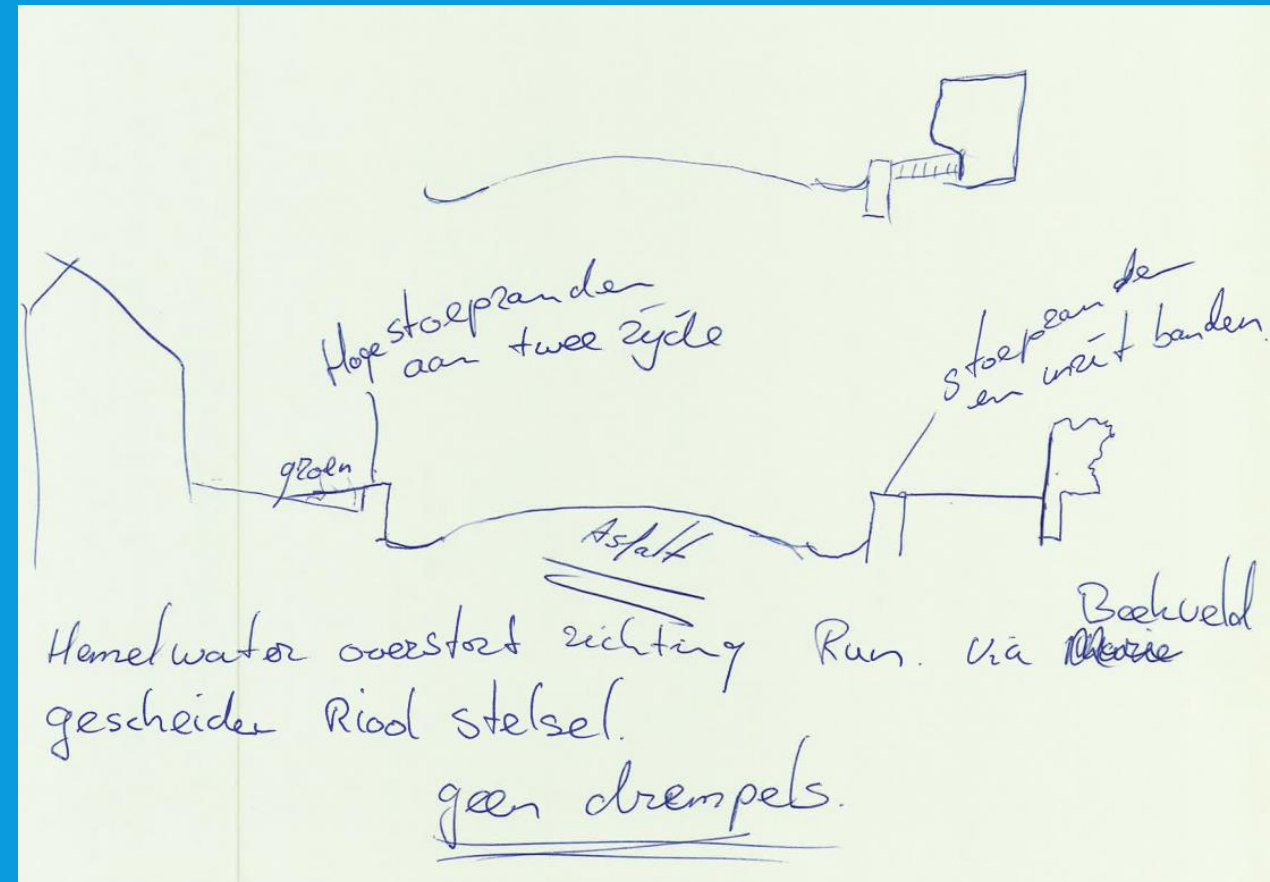 Hoge stoepranden
aan twee zijde
stoepranden
en inrit banden.
groen
Asfalt
Hemelwater overstort richting Run. via Beekveld
gescheiden Riool stelsel.
geen drempels.